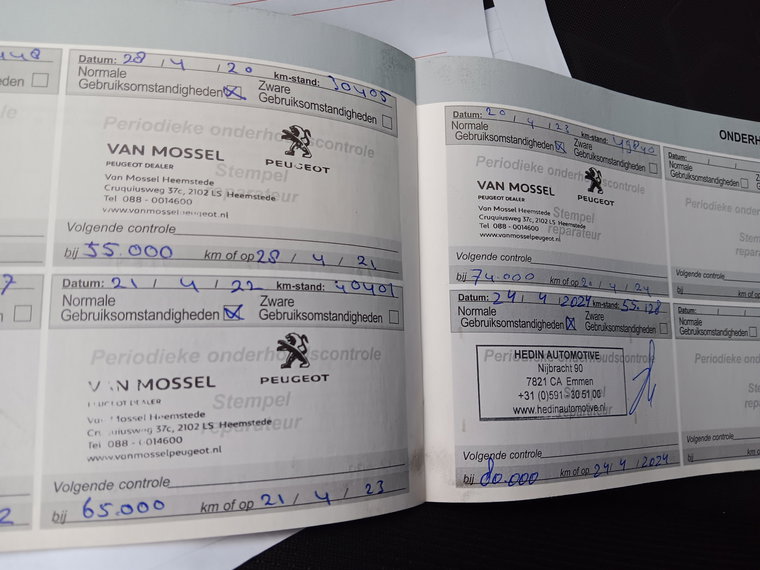 Datum: 28 / 4 / 20 km-stand: 30405
Normale
Gebruiksomstandigheden
Zware
Gebruiksomstandigheden
Periodieke onderhoudscontrole
VAN MOSSEL
PEUGEOT DEALER
PEUGEOT
Stempel
reparateur
Van Mossel Heemstede
Cruquiusweg 37c, 2102 LS Heemstede
Tel 088 - 0014600
www.vanmosselpeugeot.nl
Volgende controle
bij 55.000 km of op 28 / 4 / 21
Datum: 21 / 4 / 22 km-stand: 40401
Normale
Gebruiksomstandigheden
Zware
Gebruiksomstandigheden
Periodieke onderhoudscontrole
VAN MOSSEL
PEUGEOT DEALER
PEUGEOT
Stempel
reparateur
Van Mossel Heemstede
Cruquiusweg 37c, 2102 LS Heemstede
Tel 088 - 0014600
www.vanmosselpeugeot.nl
Volgende controle
bij 65.000 km of op 21 / 4 / 23
Datum: 20 / 4 / 23 km-stand: 49840
Normale
Gebruiksomstandigheden
Zware
Gebruiksomstandigheden
Periodieke onderhoudscontrole
VAN MOSSEL
PEUGEOT DEALER
PEUGEOT
Van Mossel Heemstede
Cruquiusweg 37c, 2102 LS Heemstede
Stempel
Tel 088 - 0014600
reparateur
www.vanmosselpeugeot.nl
Volgende controle
bij 74.000 km of op 20 / 4 / 24
Datum: 24 / 4 / 2024 km-stand: 55.128
Normale
Gebruiksomstandigheden
Zware
Gebruiksomstandigheden
Periodieke onderhoudscontrole
HEDIN AUTOMOTIVE
Nijbracht 90
7821 CA Emmen
+31 (0)591 - 30 51 00
www.hedinautomotive.nl
Volgende controle
bij 80.000 km of op 24 / 4 / 2024
Datum: / /
Normale
Gebruiksomstandigheden
Periodieke
Volgende controle
bij km of op
Datum: / /
Normale
Gebruiksomstandigheden
Periodieke
Volgende controle
bij km of op